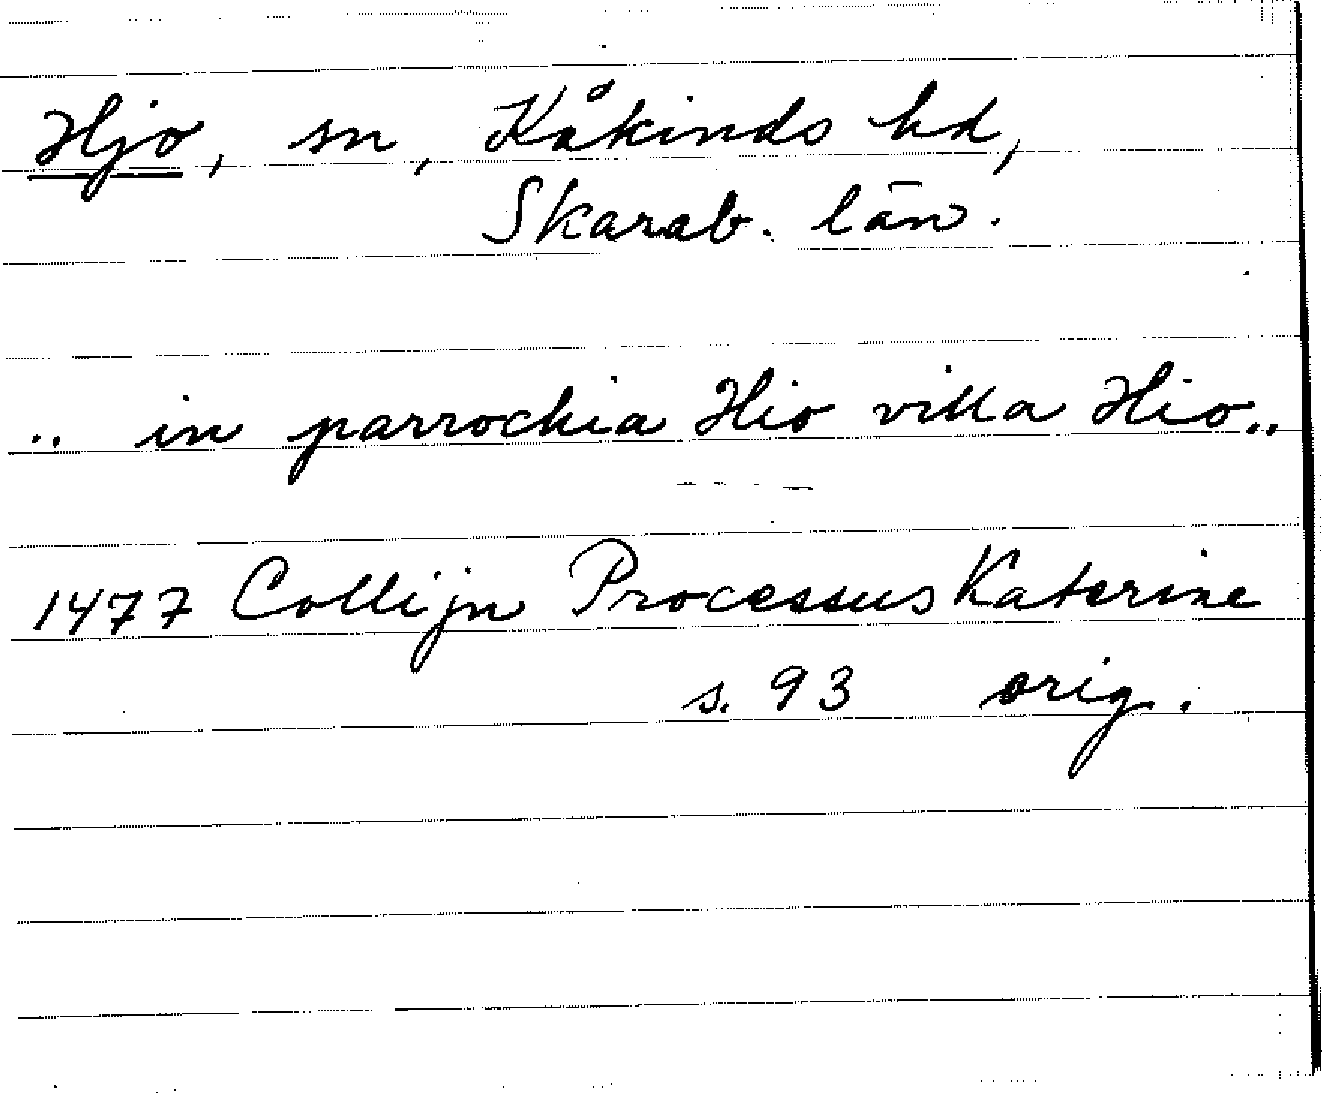 Hjo, sn, Kåkinds hd,
Skarab. län.
.. in parrochia Hio villa Hio..
1477 Collijn Processus Katerine
s. 93 orig.